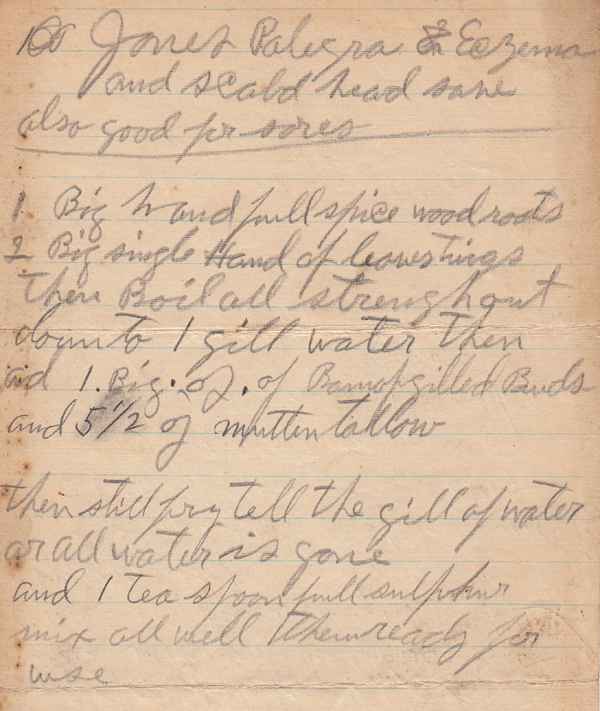 Dr Jones Palegra & Eczema
and scald head sane
also good for sores
1 Big handfull spice wood roots
2 Big single Hand of leaves twigs
then Boil all strenght out
down to 1 gill water then
ad 1. Big. oz. of Bamofgilled Buds
and 5 1/2 oz mutten tallow
then still fry tell the gill of water
or all water is gone
and 1 Tea spoon full sulphur
mix all well then ready for
use